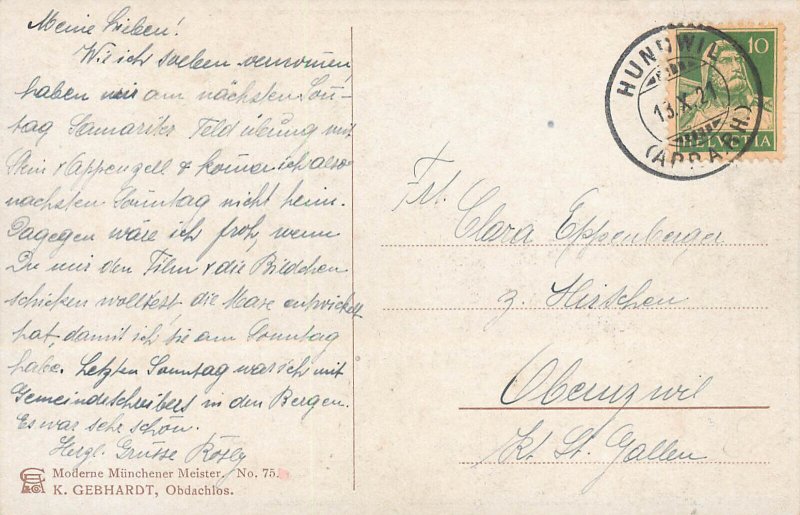 Meine Lieben!
Wie ich soeben vernommen,
haben wir am nächsten Sonn-
tag Samariter Feldübung mit
Stein & Appenzell & komme ich also
nächsten Sonntag nicht heim.
Dagegen wäre ich froh, wenn
Du mir den Film & die Bildchen
schicken wolltest, die Marie entwickelt
hat, damit ich sie am Sonntag
habe. Letzten Sonntag war ich mit
Gemeindeschreibers in den Bergen.
Es war sehr schön.
Herzl. Grüsse Rösly
Moderne Münchener Meister. No. 75.
K. GEBHARDT, Obdachlos.
HUNDWIL
13.X.21
(APP. A.RH.)
10
HELVETIA
Frl.
Clara Eppenberger
z. Hirschen
Oberuzwil
Kt. St. Gallen